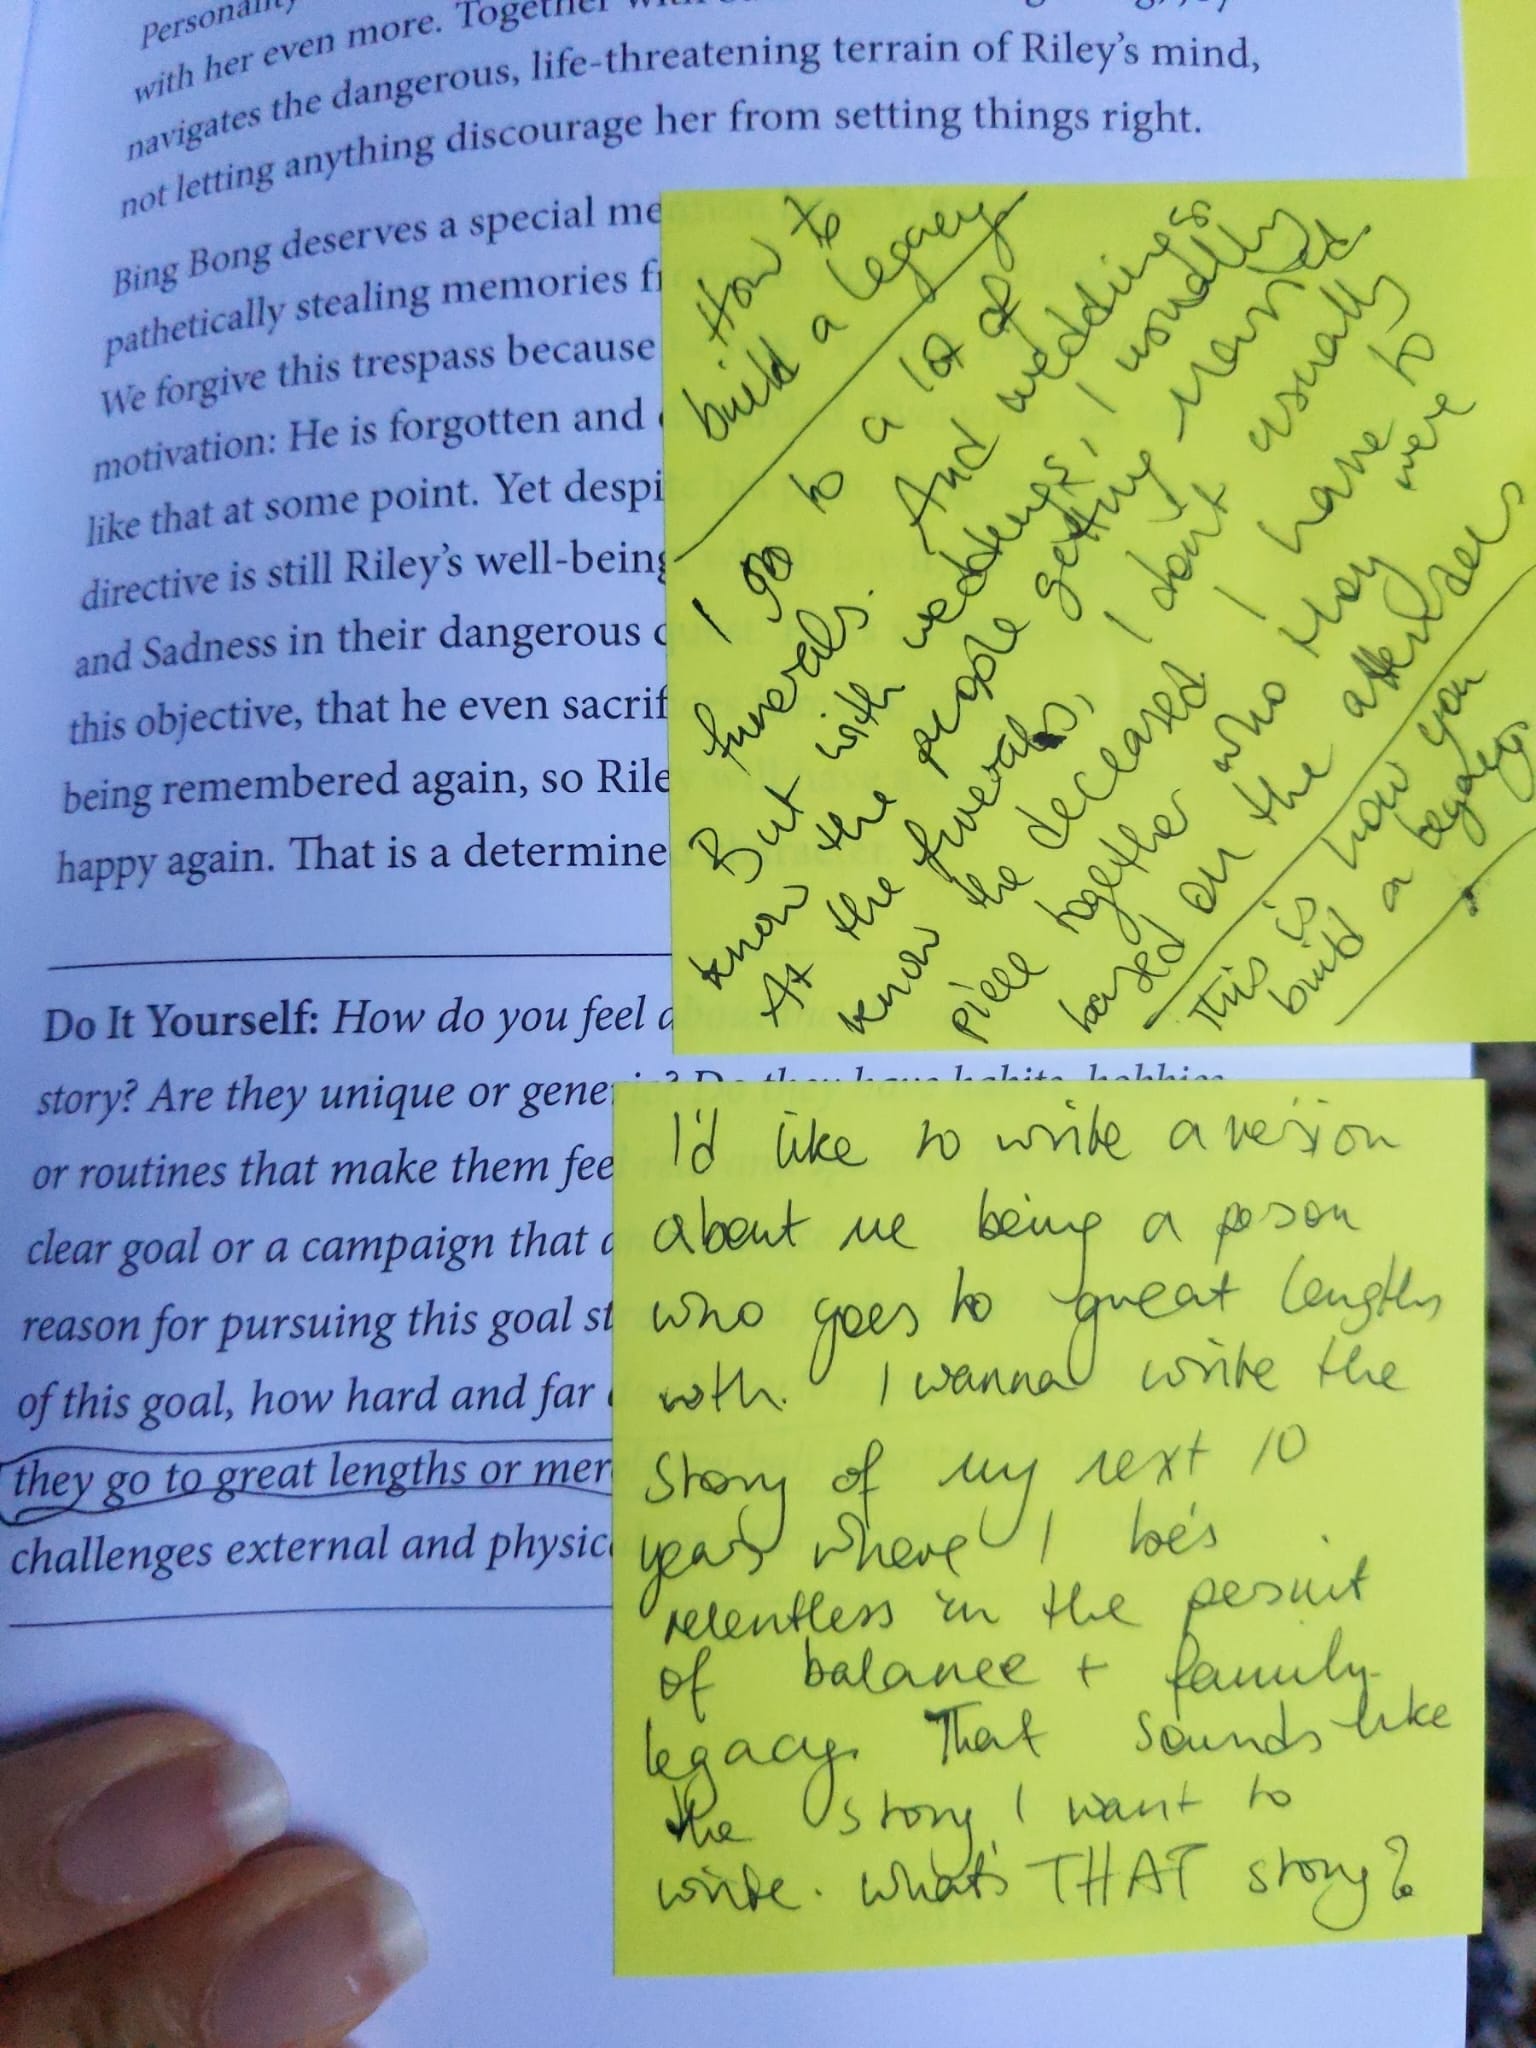 Personality
with her even more. Together with
navigates the dangerous, life-threatening terrain of Riley's mind,
not letting anything discourage her from setting things right.
Bing Bong deserves a special me
pathetically stealing memories f
We forgive this trespass because
motivation: He is forgotten and
like that at some point. Yet despi
directive is still Riley's well-being
and Sadness in their dangerous
this objective, that he even sacrif
being remembered again, so Rile
happy again. That is a determine
How to
build a legacy
I go to a lot of
funerals. And weddings.
But with weddings, I usually
know the people getting married.
At the funerals, I don't usually
know the deceased I have to
piece together who they were
based on the attendees
This is how you
build a legacy.
Do It Yourself: How do you feel
story? Are they unique or gene
or routines that make them fee
clear goal or a campaign that
reason for pursuing this goal st
of this goal, how hard and far
they go to great lengths or mer
challenges external and physic
I'd like to write a version
about me being a person
who goes to great lengths
with. I wanna write the
story of my next 10
years where I
relentless in the persuit
of balance + family
legacy. That sounds like
the story I want to
write. What's THAT story?